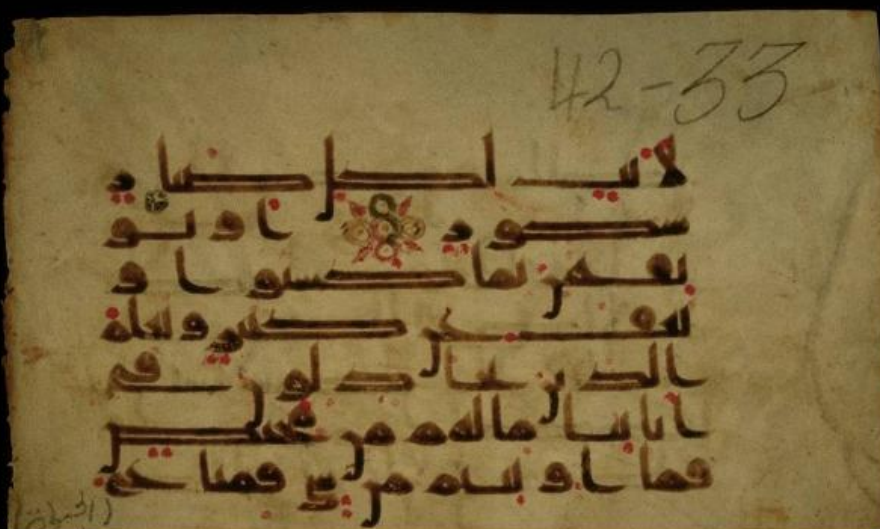 42-33
لايت لكل صبار
شكور او يو
بقهن بما كسبوا و
يعف عن كثير ويعلم
الذين يجادلون في
اياتنا ما لهم من محيص
فما اوتيتم من شي فمتاع